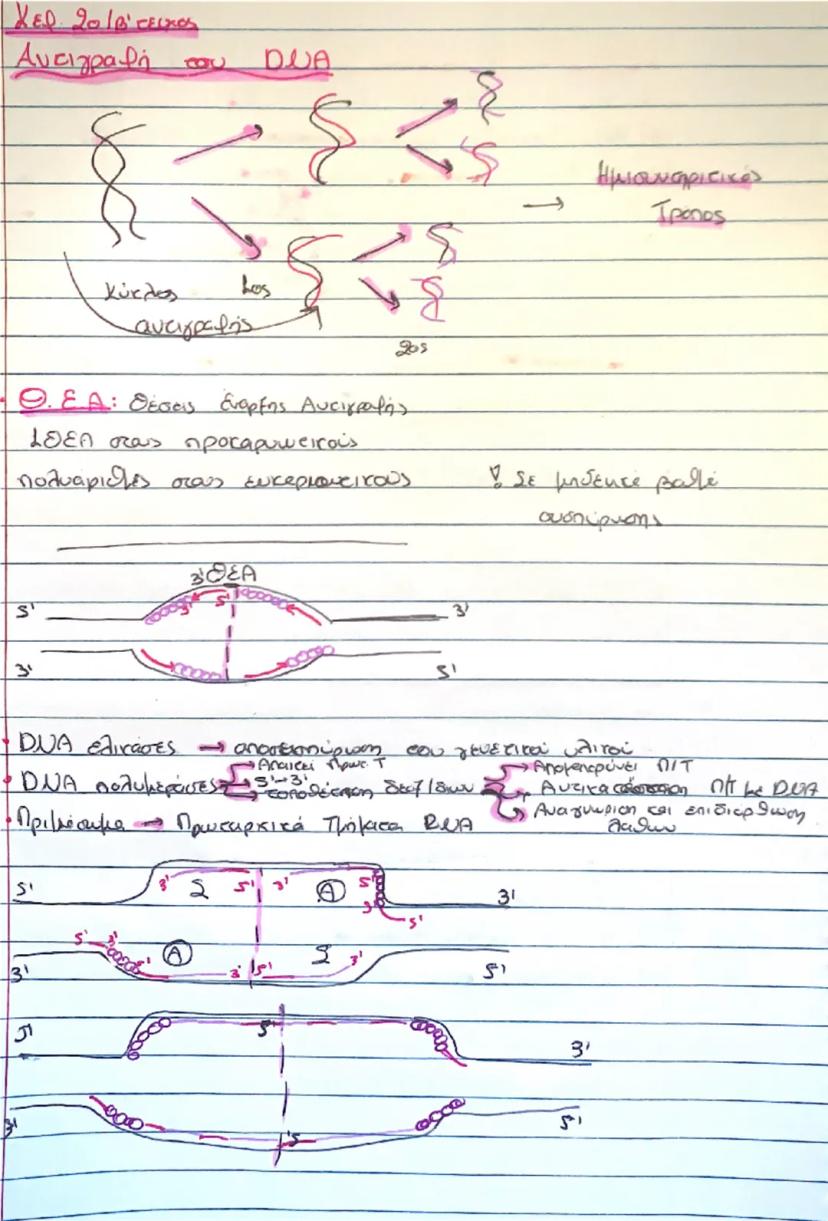 Κεφ. 2ο/Β' τεύχος
Αντιγραφή του DNA
Ημισυντηρητικός
Τρόπος
Κύκλος 1ος
αντιγραφής
2ος
Θ.Ε.Α: Θέσεις έναρξης Αντιγραφής
1ΘΕΑ στους προκαρυωτικούς
πολυάριθμες στους ευκαρυωτικούς
! Σε μηδενικό βαθμό
συσπείρωσης
3' ΘΕΑ
5' 3' 5' 3'
3' 5'
DNA ελικάσες → αποσυσπείρωση του γενετικού υλικού
DNA πολυμεράσες
Απαιτεί Πρωτ. Τ
5'→3'
τοποθέτηση δεοξ/δίων
Απομακρύνει Π/Τ
Αντικατάσταση Π/Τ με DNA
Αναγνώριση και επιδιόρθωση
λαθών
Πριμόσωμα → Πρωταρχικά Τμήματα RNA
5' 3' Σ 5' 3' Α 5' 3'
3' 5'
5' 3' Α Σ 3'
3' 5' 3' 5' 5'
5' 5' 3'
3' 5' 5'